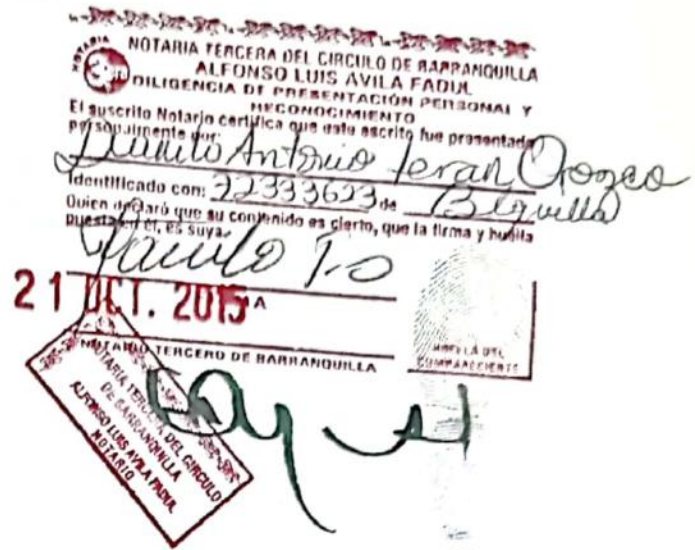 NOTARIA TERCERA DEL CIRCULO DE BARRANQUILLA
NOTARIA
3a
ALFONSO LUIS AVILA FADUL
DILIGENCIA DE PRESENTACIÓN PERSONAL Y
RECONOCIMIENTO
El suscrito Notario certifica que este escrito fue presentado
personalmente por:
Danilo Antonio Teran Orozco
Identificado con: 72333623 de B/quilla
Quien declaró que su contenido es cierto, que la firma y huella
puesta en él, es suya.
Danilo T.O
21 OCT. 2015
NOTARIO TERCERO DE BARRANQUILLA
HUELLA DEL
COMPARECIENTE
NOTARIA TERCERA DEL CIRCULO
DE BARRANQUILLA
ALFONSO LUIS AVILA FADUL
NOTARIO